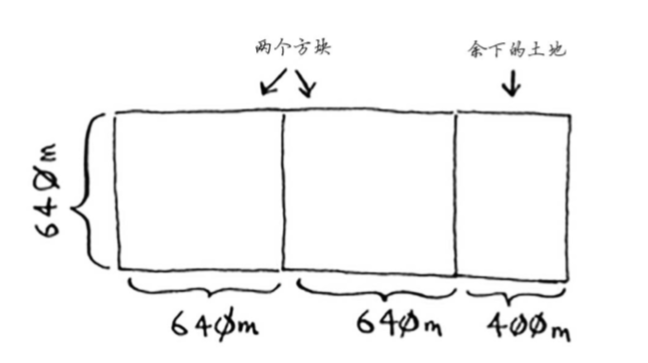 两个方块
余下的土地
640m
640m
640m
400m